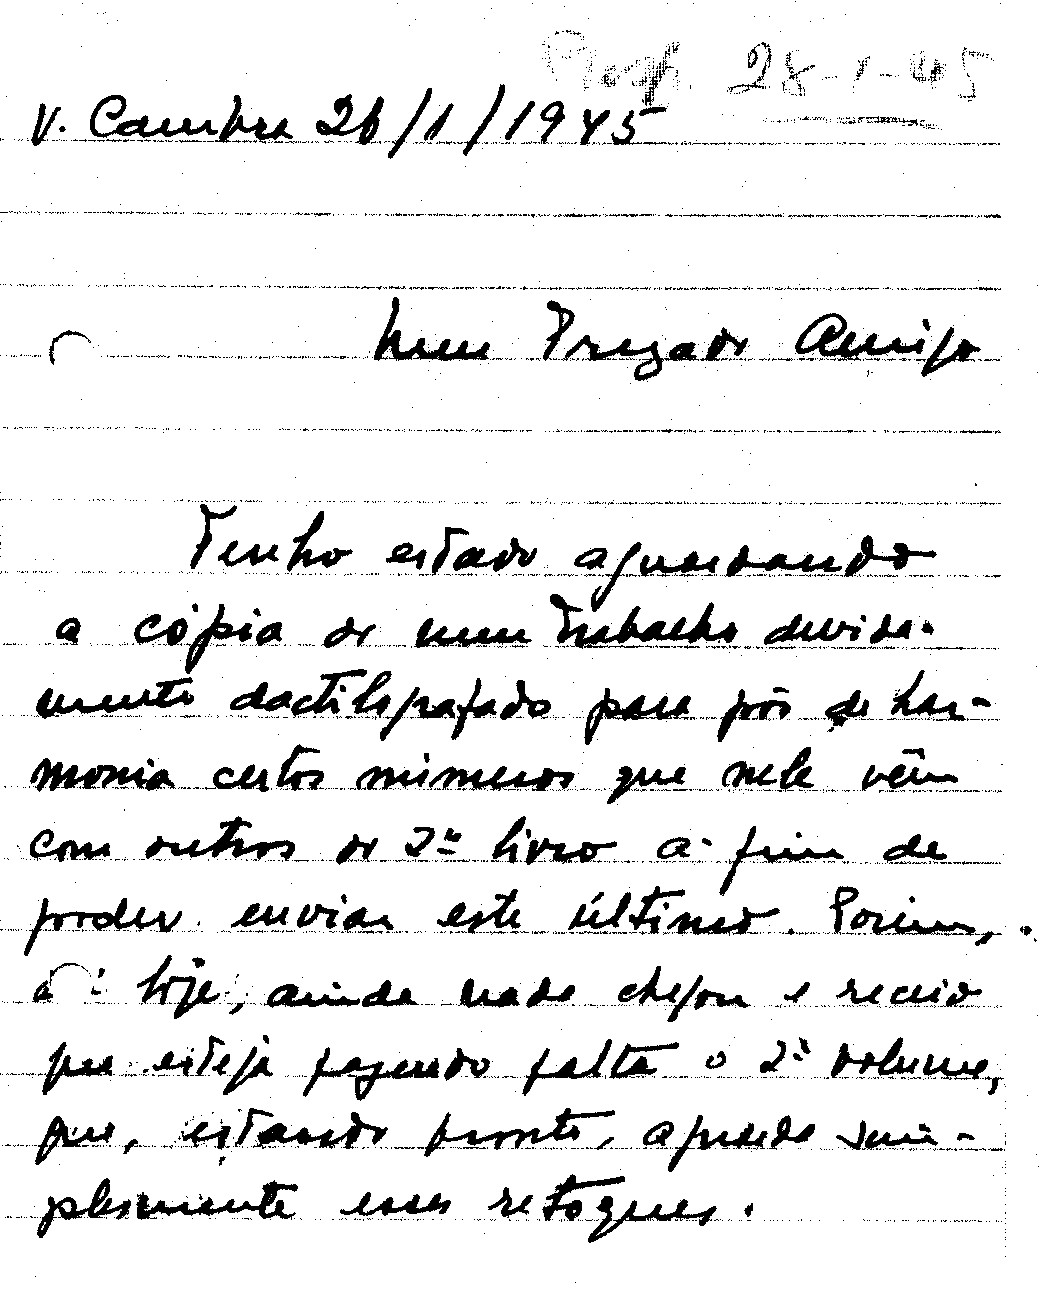 28-1-45
V. Cambra 26/1/1945
Meu Prezado Amigo
Tenho estado aguardando
a cópia do meu trabalho devida-
mente dactilografado para pôr de har-
monia certos números que nele vêm
com outros do 2º livro a fim de
poder enviar este último. Porém,
até hoje, ainda nada chegou e receio
que esteja fazendo falta o 2º volume,
que, estando pronto, aguarda sim-
plesmente esses retoques.